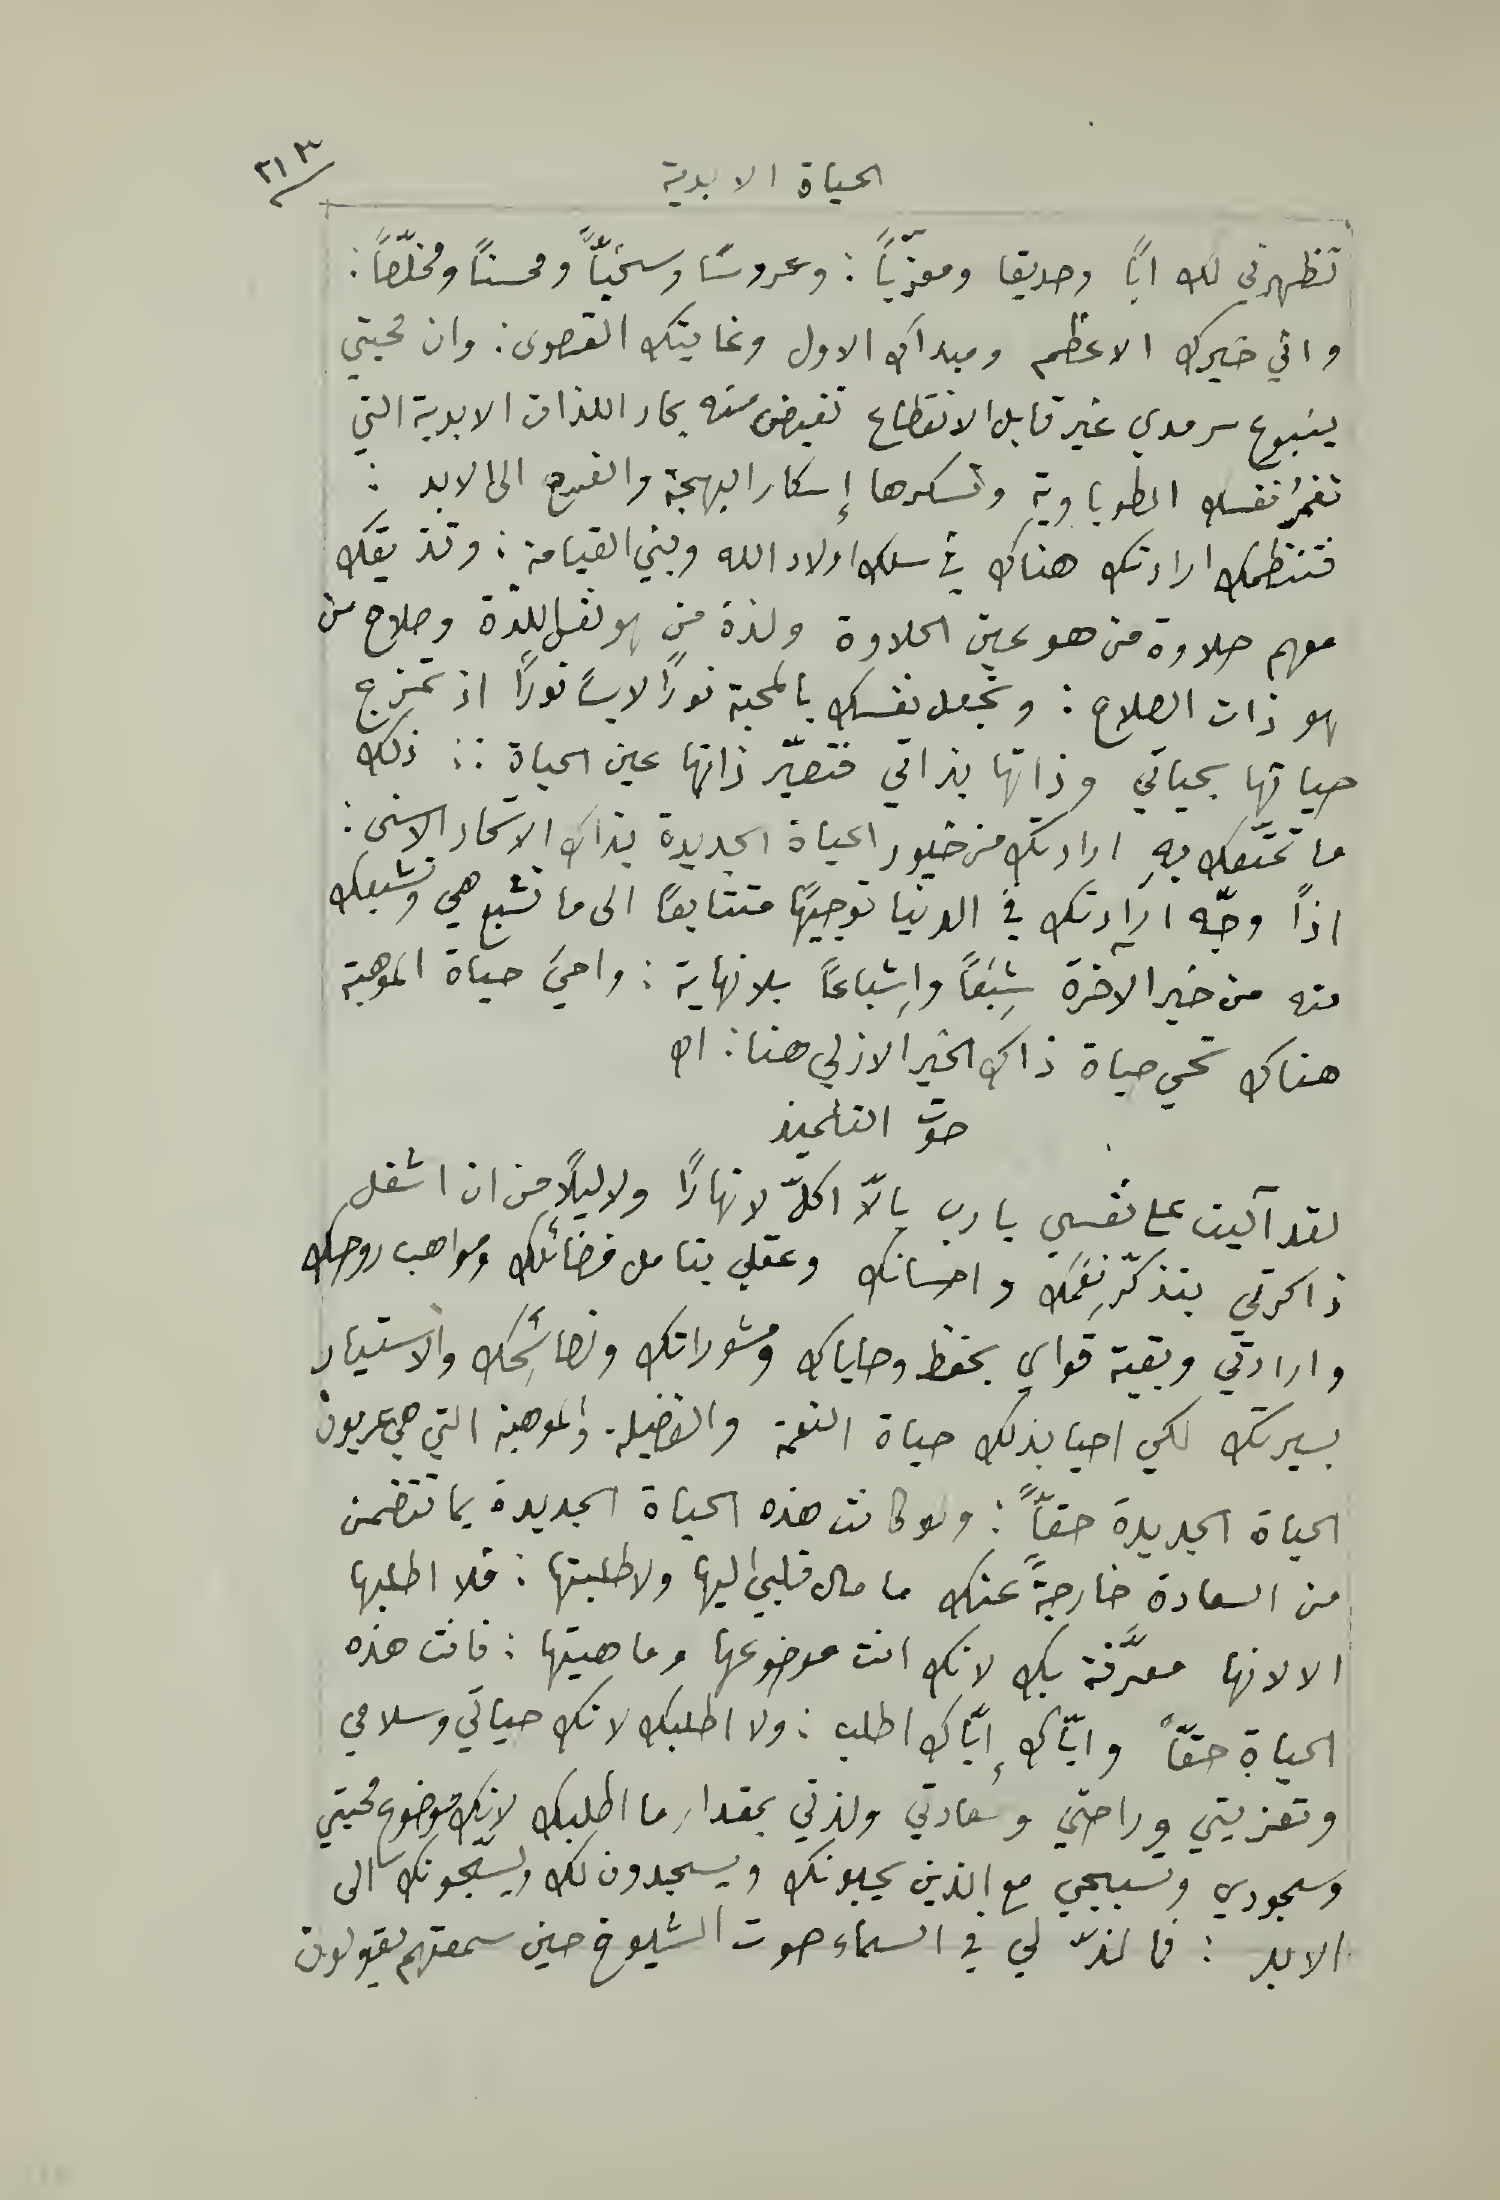 الحياة الابدية
٣١٣
تظهرني لك ابًا وصديقا ومعزّيًا : وعروسًا وسخيًّا ومحسنًا ومخلّصًا :
واني خيرك الاعظم ومبدأك الاول وغايتك القصوى : وان محبتي
ينبوع سرمدي غير قابل الانقطاع تفيض منه بحار اللذات الابدية التي
تغمرُ نفسك الطوباوية وتسكرها إسكار البهجة والفرح الى الابد :
فتنتظمك ارادتك هناك في سلك اولاد الله وبني القيامة : وتذيقك
معهم حلاوة من هو عين الحلاوة ولذة من هو نفس اللذّة وصلاح من
هو ذات الصلاح : وتجعل نفسك بالمحبة نورًا لابسًا نورًا اذ تمتزج
حياتها بحياتي وذاتها بذاتي فتصيّر ذاتها عين الحياة :: ذلك
ما تمتّعك بهِ ارادتك من خيور الحياة الجديدة بذاك الاتحاد الاسنى :
اذاً وجّه ارادتك في الدنيا توجيهًا متتابعًا الى ما تشبع هي وتشبعك
منه من خير الاخرة شِبَعًا واِشباعًا بلا نهاية : واحيَ حياة الموهبة
هناك تحي حياة ذاك الخير الازلي هنا : اه
صوت التلميذ
لقد آليت على نفسي يا رب بالاّ اكلّ لا نهارًا ولا ليلًا من ان اشغل
ذاكرتي بتذكّر نِعَمك واحسانك وعقلي بتامل فضائلك ومواهب روحك
وارادتي وبقية قواي بحفظ وصاياك ومشوراتك ونصائحِك والاستيار
بسيرتك لكي احيا بذلك حياة النعمة والفضيلة والموهبة التي هي عربون
الحياة الجديدة حقًّا : ولو كانت هذه الحياة الجديدة بما تتضمن
من السعادة خارجةً عنك ما مال قلبي اليها ولا طلبتها : فلا اطلبها
الا لانها معرَّفة بك لانك انت موضوعها وماهيتها : فانت هذه
الحياة حقًّا وايّاك إيّاك اطلب : ولا اطلبك لانك حياتي وسلامي
وتعزيتي وراحتي وسعادتي ولذتي بمقدار ما اطلبك لانك موضوع محبتي
وسجودي وتسبيحي مع الذين يحبونك ويسجدون لك ويسبّحونك الى
الابد : فما لذّ لي في السماء صوت الشيوخ حين سمعتهم يقولون